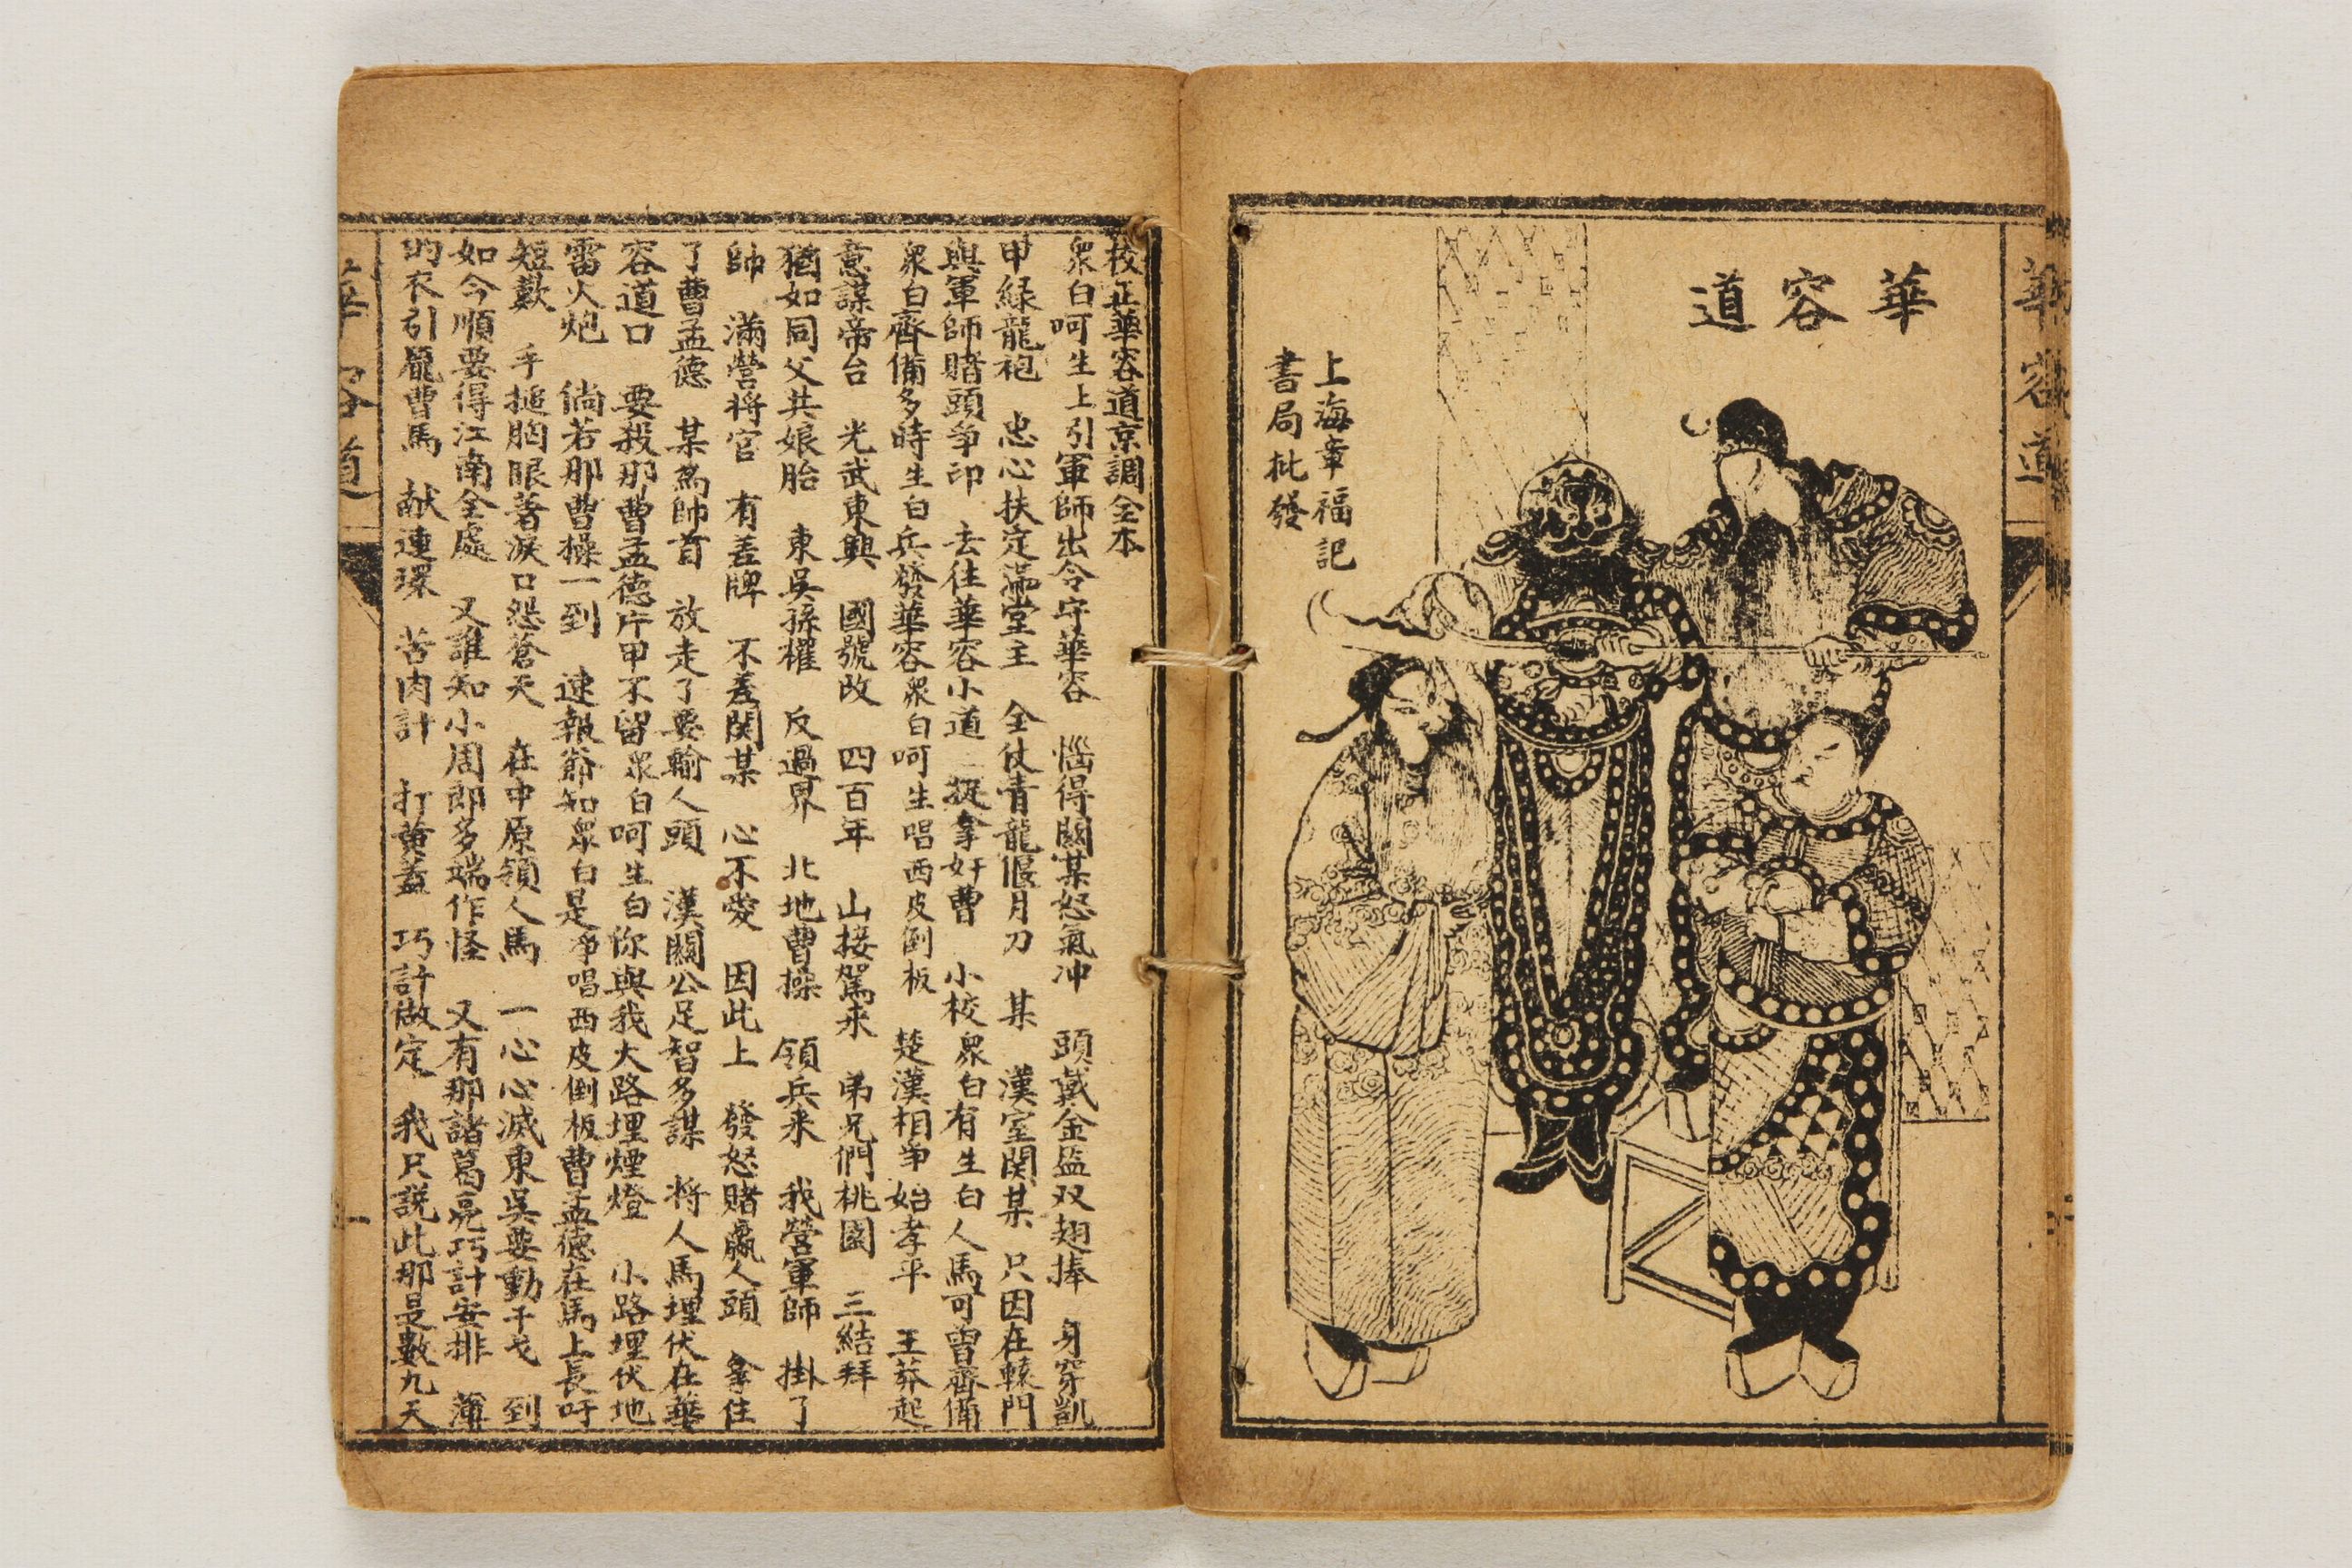 華容道
華容道
上海章福記
書局批發
校正華容道京調全本
眾白呵生上引軍師出令守華容 惱得關某怒氣冲 頭戴金盔双翅捧 身穿凱
甲綠龍袍 忠心扶定滿堂主 全仗青龍偃月刀 某 漢室関某 只因在轅門
與軍師賭頭争印 去往華容小道 捉拿奸曹 小校眾白有生白人馬可曾齊備
眾白齊備多時生白兵發華容眾白呵生唱西皮倒板 楚漢相争始孝平 王莽起
意謀帝台 光武東興 國號改 四百年 山接駕来 弟兄們桃園 三結拜
猶如同父共娘胎 東吳孫權 反過界 北地曹操 領兵来 我營軍師 掛了
帥 滿營將官 有差牌 不差関某 心不愛 因此上 發怒賭贏人頭 拿住
了曹孟德 某為帥首 放走了要輸人頭 漢關公足智多謀 將人馬埋伏在華
容道口 要殺那曹孟德片甲不留眾白呵生白你與我大路埋煙燈 小路埋伏地
雷火炮 倘若那曹操一到 速報爺知眾白是淨唱西皮倒板曹孟德在馬上長吁
短歎 手搥胸眼著淚口怨蒼天 在中原領人馬 一心心滅東吳要動干戈 到
如今順要得江南全處 又誰知小周郎多端作怪 又有那諸葛亮巧計安排
的衣引龐曹馬 献連環 苦肉計 打黄蓋 巧計做定 我只説此那是數九天
華容道
一